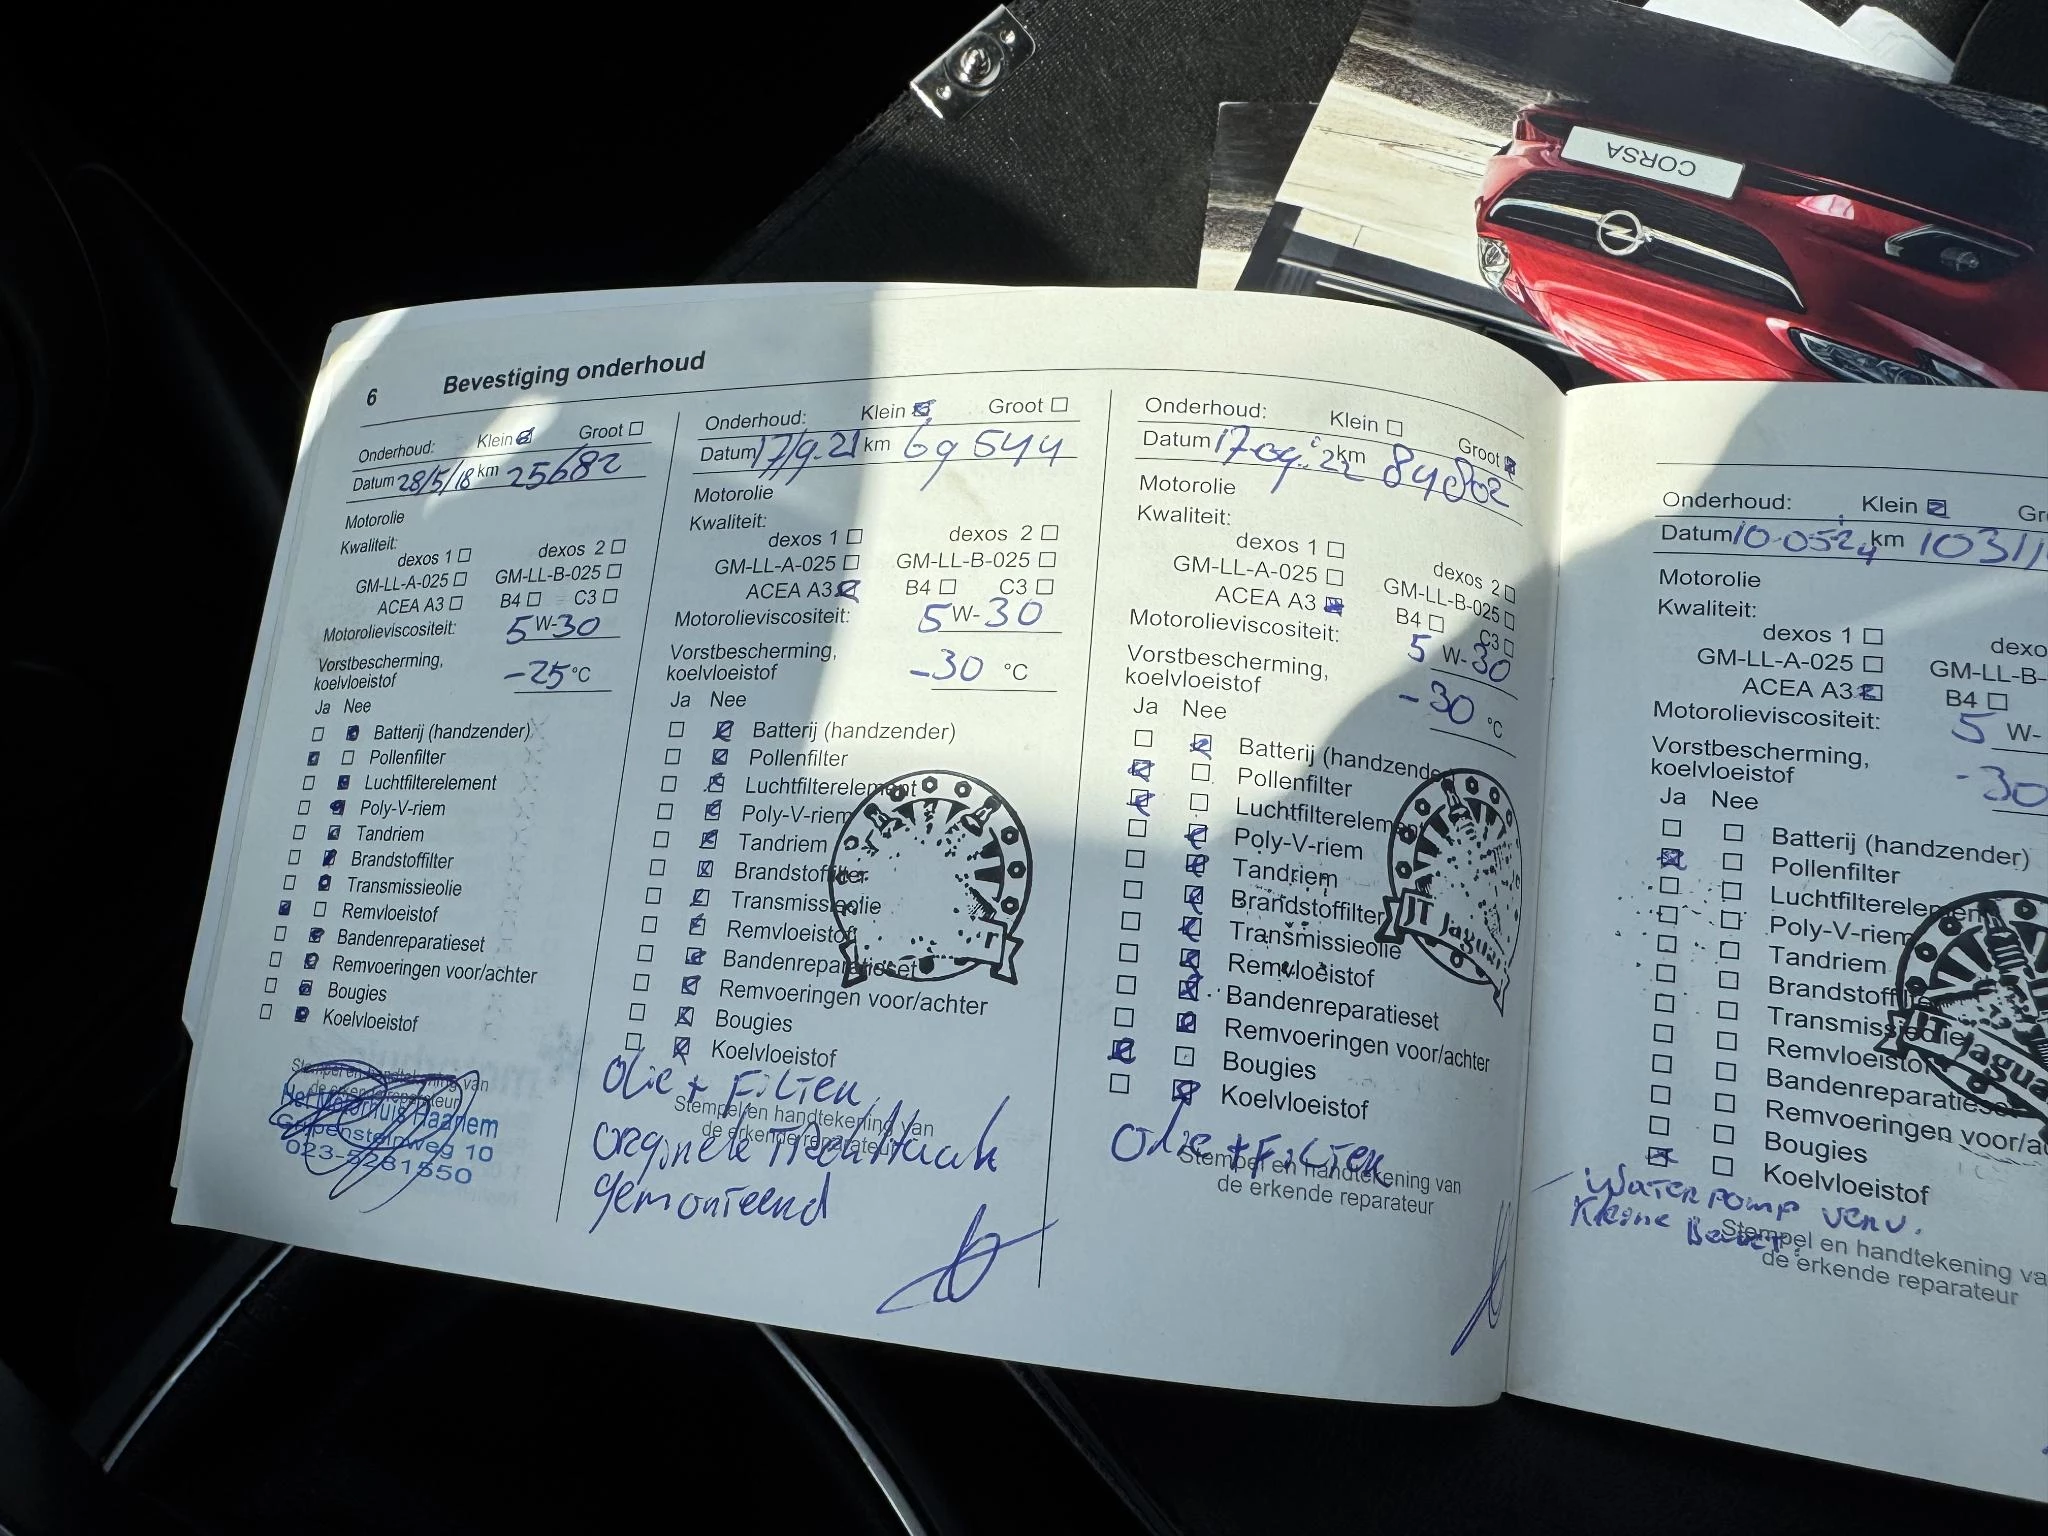 CORSA
6 Bevestiging onderhoud
Onderhoud: Klein Groot
Datum 28/5/18 km 25682
Motorolie
Kwaliteit:
dexos 1 dexos 2
GM-LL-A-025 GM-LL-B-025
ACEA A3 B4 C3
Motorolieviscositeit: 5 W-30
Vorstbescherming,
koelvloeistof -25 °C
Ja Nee
Batterij (handzender)
Pollenfilter
Luchtfilterelement
Poly-V-riem
Tandriem
Brandstoffilter
Transmissieolie
Remvloeistof
Bandenreparatieset
Remvoeringen voor/achter
Bougies
Koelvloeistof
Stempel en handtekening van
de erkende reparateur
Het Motorhuis Haarlem
Gripensteinweg 10
023-5281550
Onderhoud: Klein Groot
Datum 17/9.21 km 69544
Motorolie
Kwaliteit:
dexos 1 dexos 2
GM-LL-A-025 GM-LL-B-025
ACEA A3 B4 C3
Motorolieviscositeit: 5 W-30
Vorstbescherming,
koelvloeistof -30 °C
Ja Nee
Batterij (handzender)
Pollenfilter
Luchtfilterelement
Poly-V-riem
Tandriem
Brandstoffilter
Transmissieolie
Remvloeistof
Bandenreparatieset
Remvoeringen voor/achter
Bougies
Koelvloeistof
Olie + Filter
Stempel en handtekening van
de erkende reparateur
orginele
gemonteerd
Onderhoud: Klein Groot
Datum 17-09-'22 km 84802
Motorolie
Kwaliteit:
dexos 1 dexos 2
GM-LL-A-025 GM-LL-B-025
ACEA A3 B4 C3
Motorolieviscositeit: 5 W-30
Vorstbescherming,
koelvloeistof -30 °C
Ja Nee
Batterij (handzender)
Pollenfilter
Luchtfilterelement
Poly-V-riem
Tandriem
Brandstoffilter
Transmissieolie
Remvloeistof
Bandenreparatieset
Remvoeringen voor/achter
Bougies
Koelvloeistof
JT Jaguar
Olie + Filter
Stempel en handtekening van
de erkende reparateur
Onderhoud: Klein Gro
Datum 10-05-24 km 1031
Motorolie
Kwaliteit:
dexos 1 dexo
GM-LL-A-025 GM-LL-B-
ACEA A3 B4
Motorolieviscositeit: 5 W-
Vorstbescherming,
koelvloeistof -30
Ja Nee
Batterij (handzender)
Pollenfilter
Luchtfilterelement
Poly-V-riem
Tandriem
Brandstoffilter
Transmissieolie
Remvloeistof
Bandenreparatieset
Remvoeringen voor/a
Bougies
Koelvloeistof
JT Jagua
Waterpomp verv.
Kleine Beurt
Stempel en handtekening va
de erkende reparateur